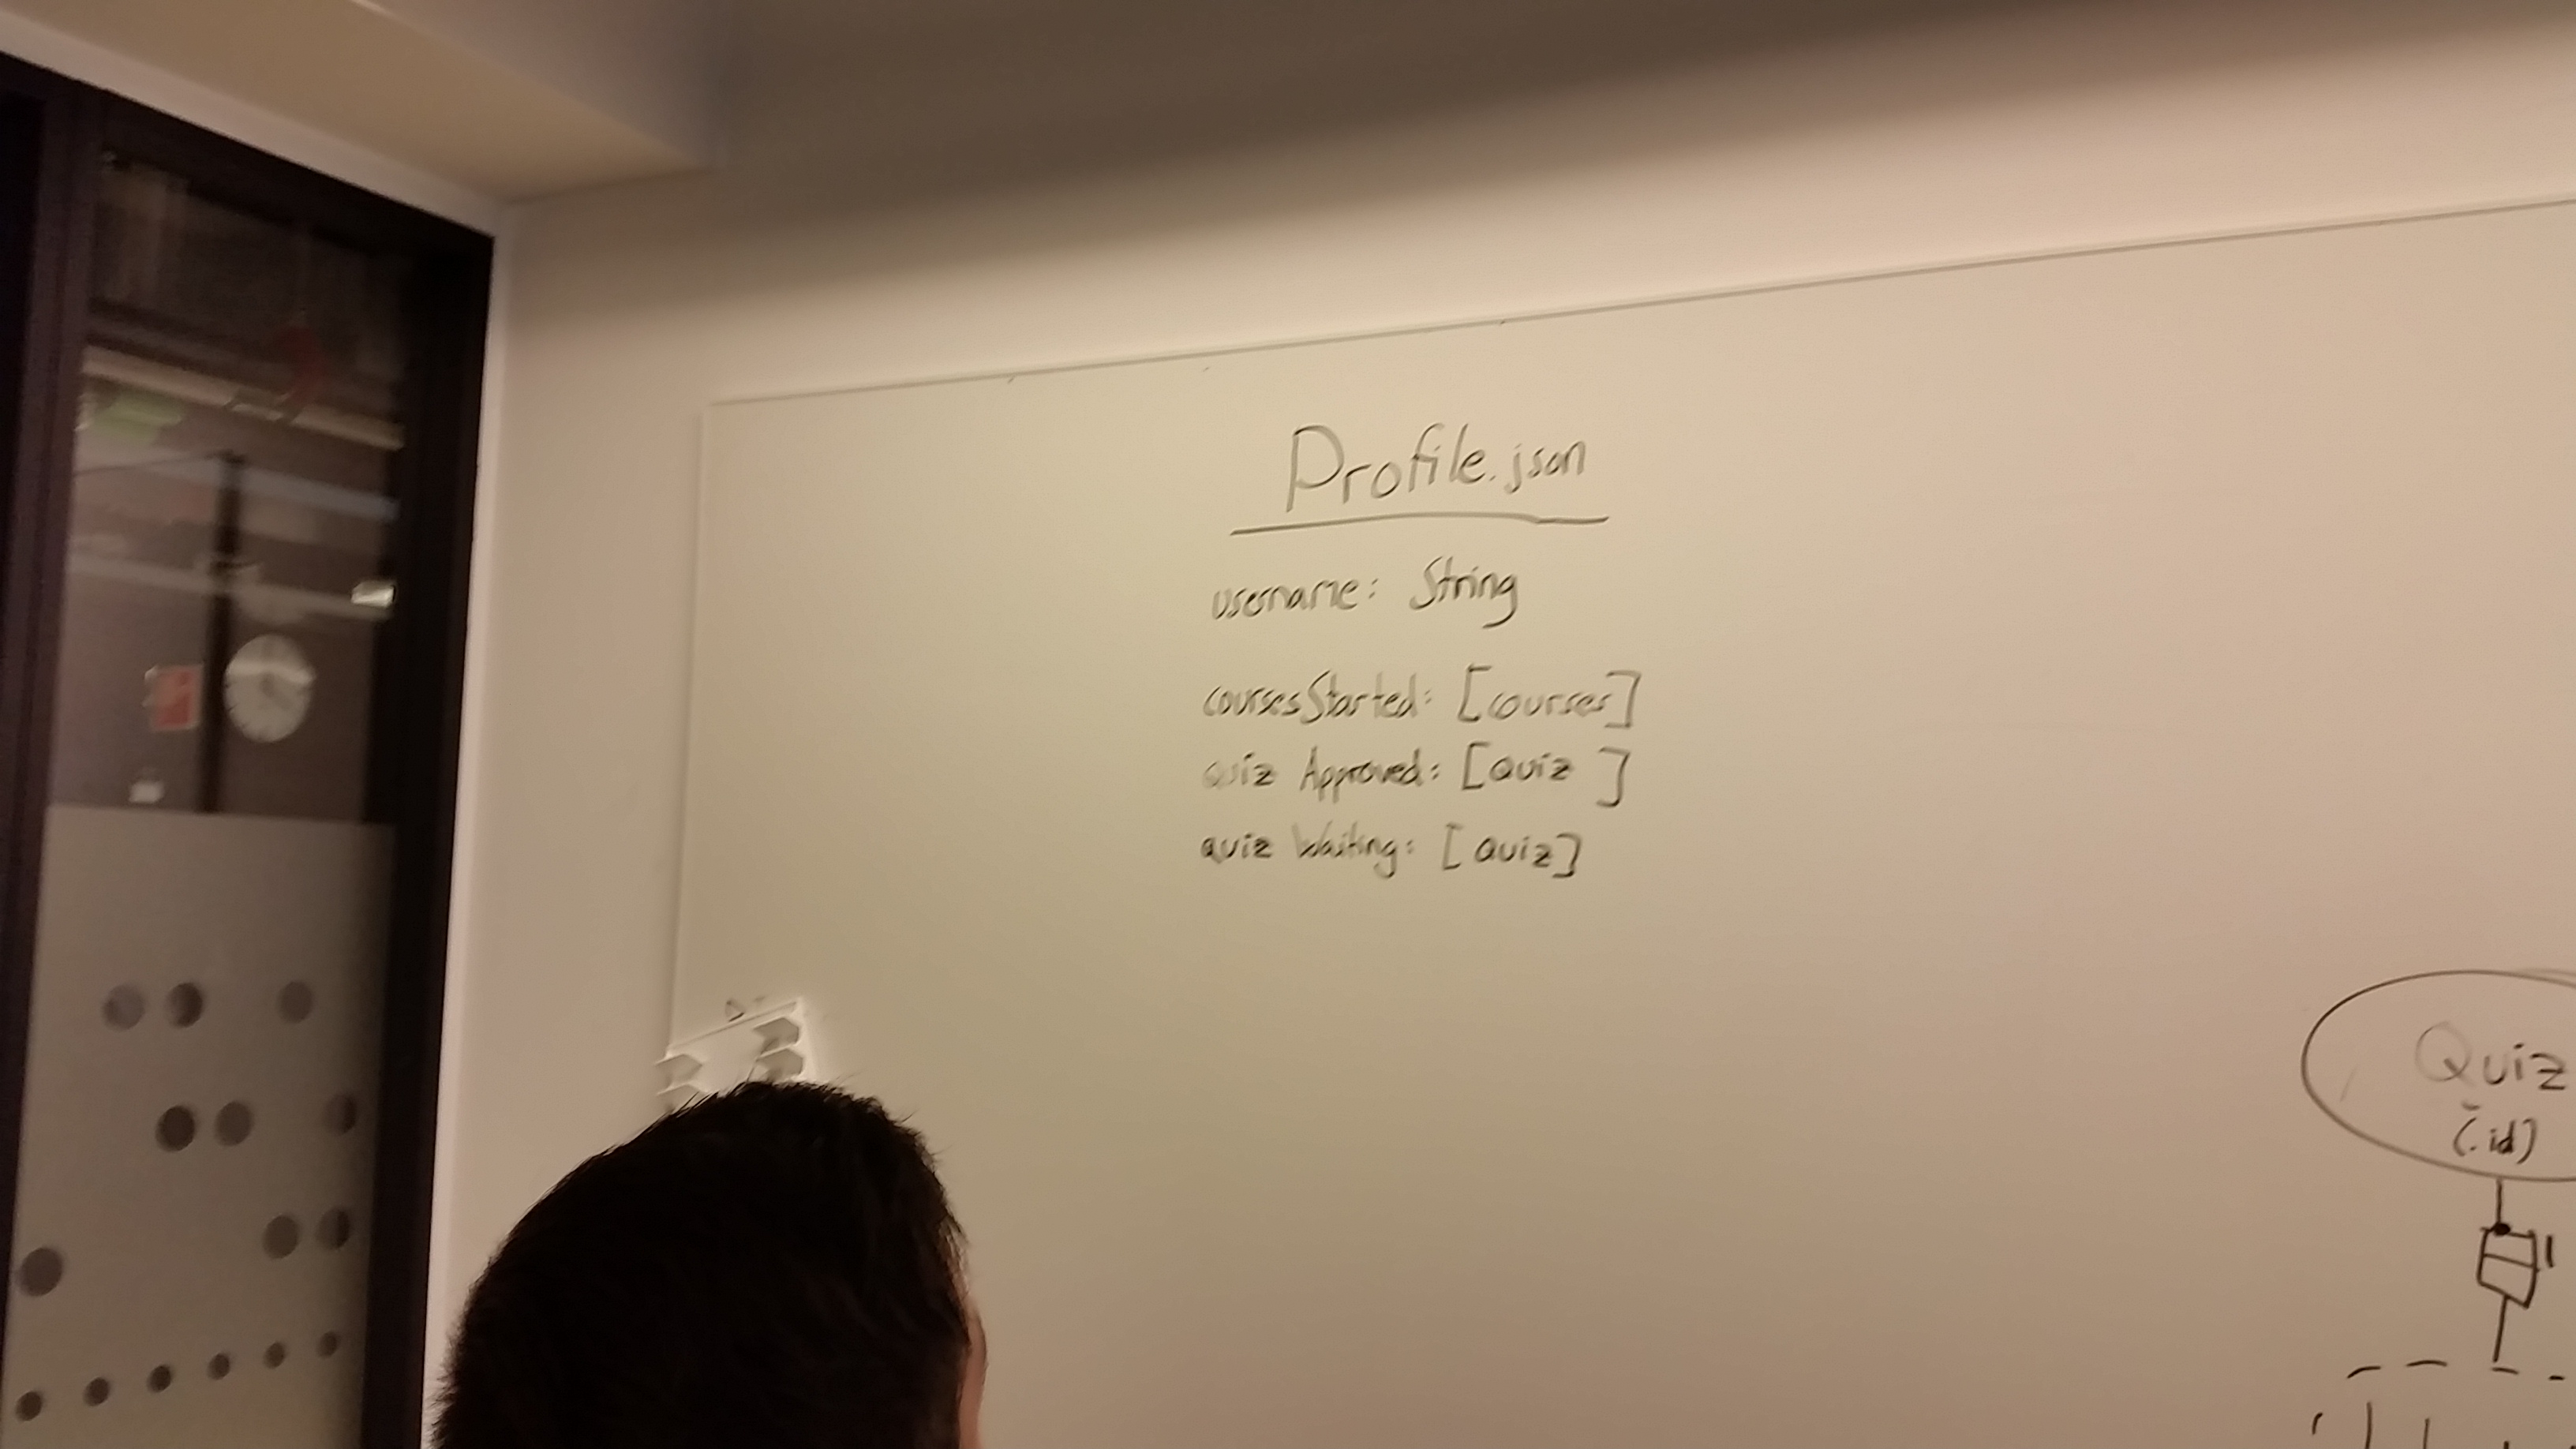 Profile.json
username: String
coursesStarted: [courses]
quiz Approved: [quiz]
quiz Waiting: [quiz]
Quiz
(.id)
1